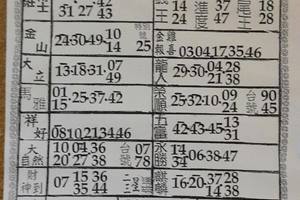 31·27·43
王 28 度 38
王 24 七 71
金山 24·30·49·10 14 特別號 25
金雞報喜 03,04,17,35,46
大立 13·18·31·07 49
龍人 29·30·04·28 21 38
馬雅 01 15·25·37·42
榮順 25·32·10·09 24 台號 90 45
祥好 08,10,21,34,46
五富 42·43·45·13 31
大自然 10 04,36 20·27·38 台號 07 78
永勝 14 34·06·38·47
財神到 07 15 36 35 44
麒麟 16·20·37·28 14 38